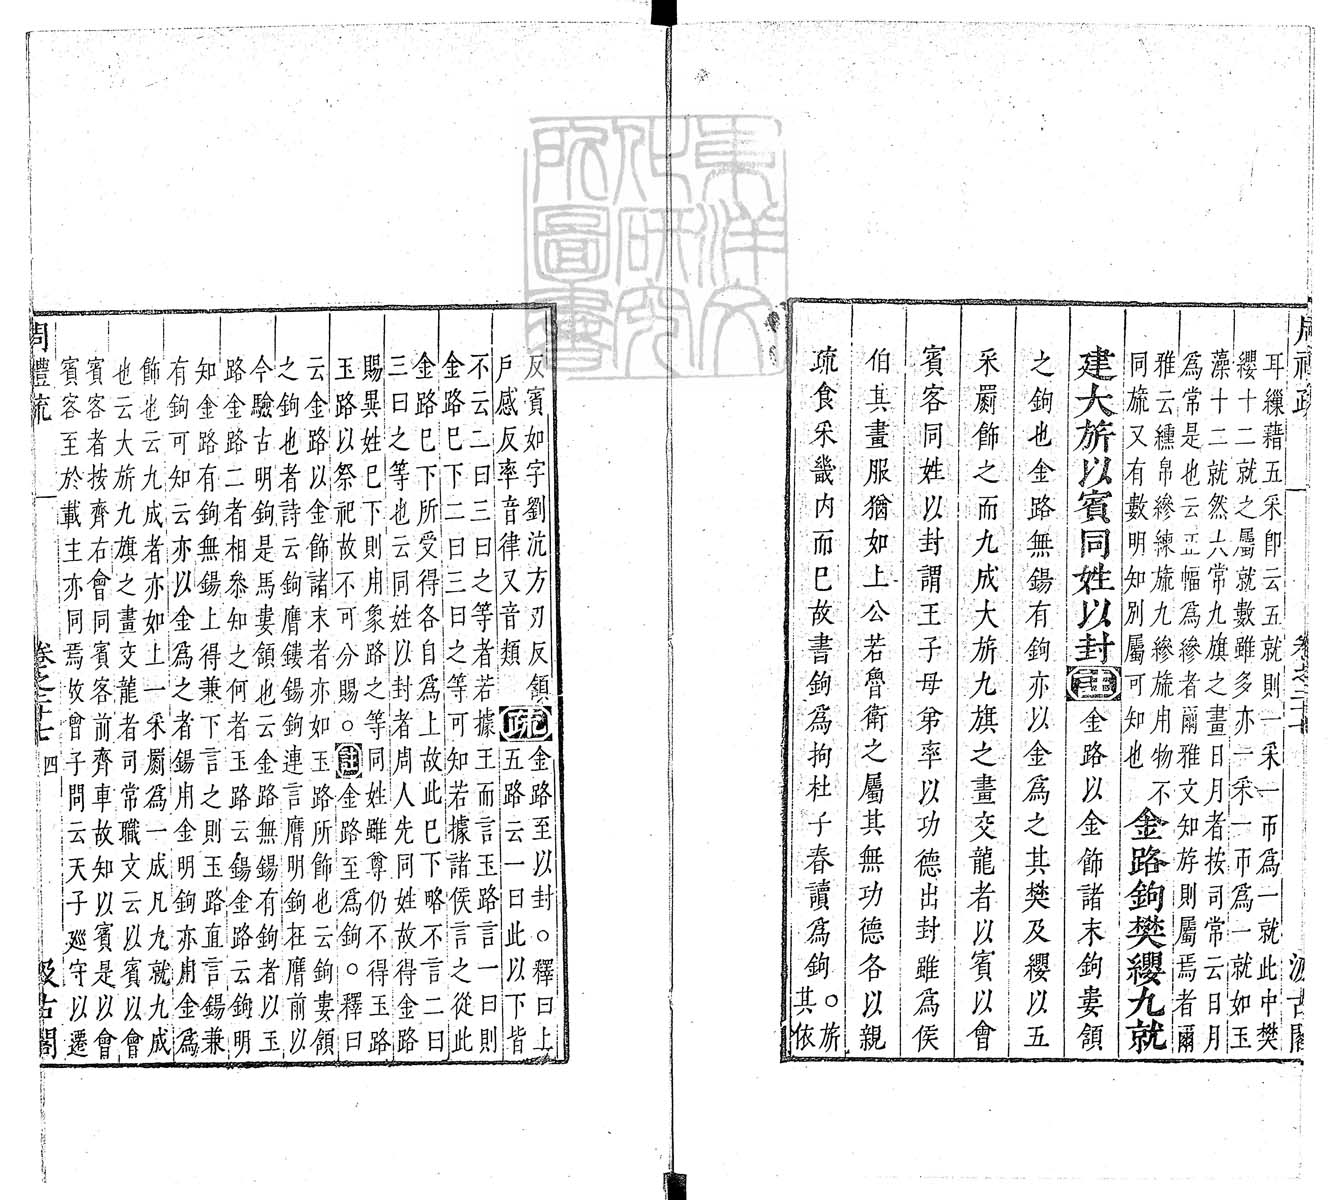 耳纖藉五采卽云五就則一采一帀爲一就此中樊
纓十二就之屬就數雖多亦一采一帀爲一就如玉
藻十二就然大常九旗之畫日月者按司常云日月
爲常是也云正幅爲縿者爾雅文知斿則屬焉者爾
雅云纁帛縿練旒九縿旒用物不
同旒又有數明知別屬可知也
金路鉤樊纓九就
建大旂以賓同姓以封註金路以金飾諸末鉤婁頷
之鉤也金路無鍚有鉤亦以金爲之其樊及纓以五
采罽飾之而九成大旂九旗之畫交龍者以賓以會
賓客同姓以封謂王子母弟率以功德出封雖爲侯
伯其畫服猶如上公若魯衛之屬其無功德各以親
疏食采畿內而已故書鉤爲拘杜子春讀爲鉤。旂
其依
反賓如字劉沇方刃反頷
戶感反率音律又音類
疏金路至以封。釋曰上
五路云一曰此以下皆
不云二曰三曰之等者若據王而言玉路言一曰則
金路已下二曰三曰之等可知若據諸侯言之從此
金路已下所受得各自爲上故此已下略不言二曰
三曰之等也云同姓以封者周人先同姓故得金路
賜異姓已下則用象路之等同姓雖尊仍不得玉路
玉路以祭祀故不可分賜。註金路至爲鉤。釋曰
云金路以金飾諸末者亦如玉路所飾也云鉤婁頷
之鉤也者詩云鉤膺鏤鍚鉤連言膺明鉤在膺前以
今驗古明鉤是馬婁頷也云金路無鍚有鉤者以玉
路金路二者相參知之何者玉路云鍚金路云鉤明
知金路有鉤無鍚上得兼下言之則玉路直言鍚兼
有鉤可知云亦以金爲之者鍚用金明鉤亦用金爲
飾也云九成者亦如上一采罽爲一成凡九就九成
也云大旂九旗之畫交龍者司常職文云以賓以會
賓客者按齊右會同賓客前齊車故知以賓是以會
賓客至於載主亦同焉故曾子問云天子廵守以遷
周禮疏
卷之二十七
四
汲古閣
東洋文化研究所圖書